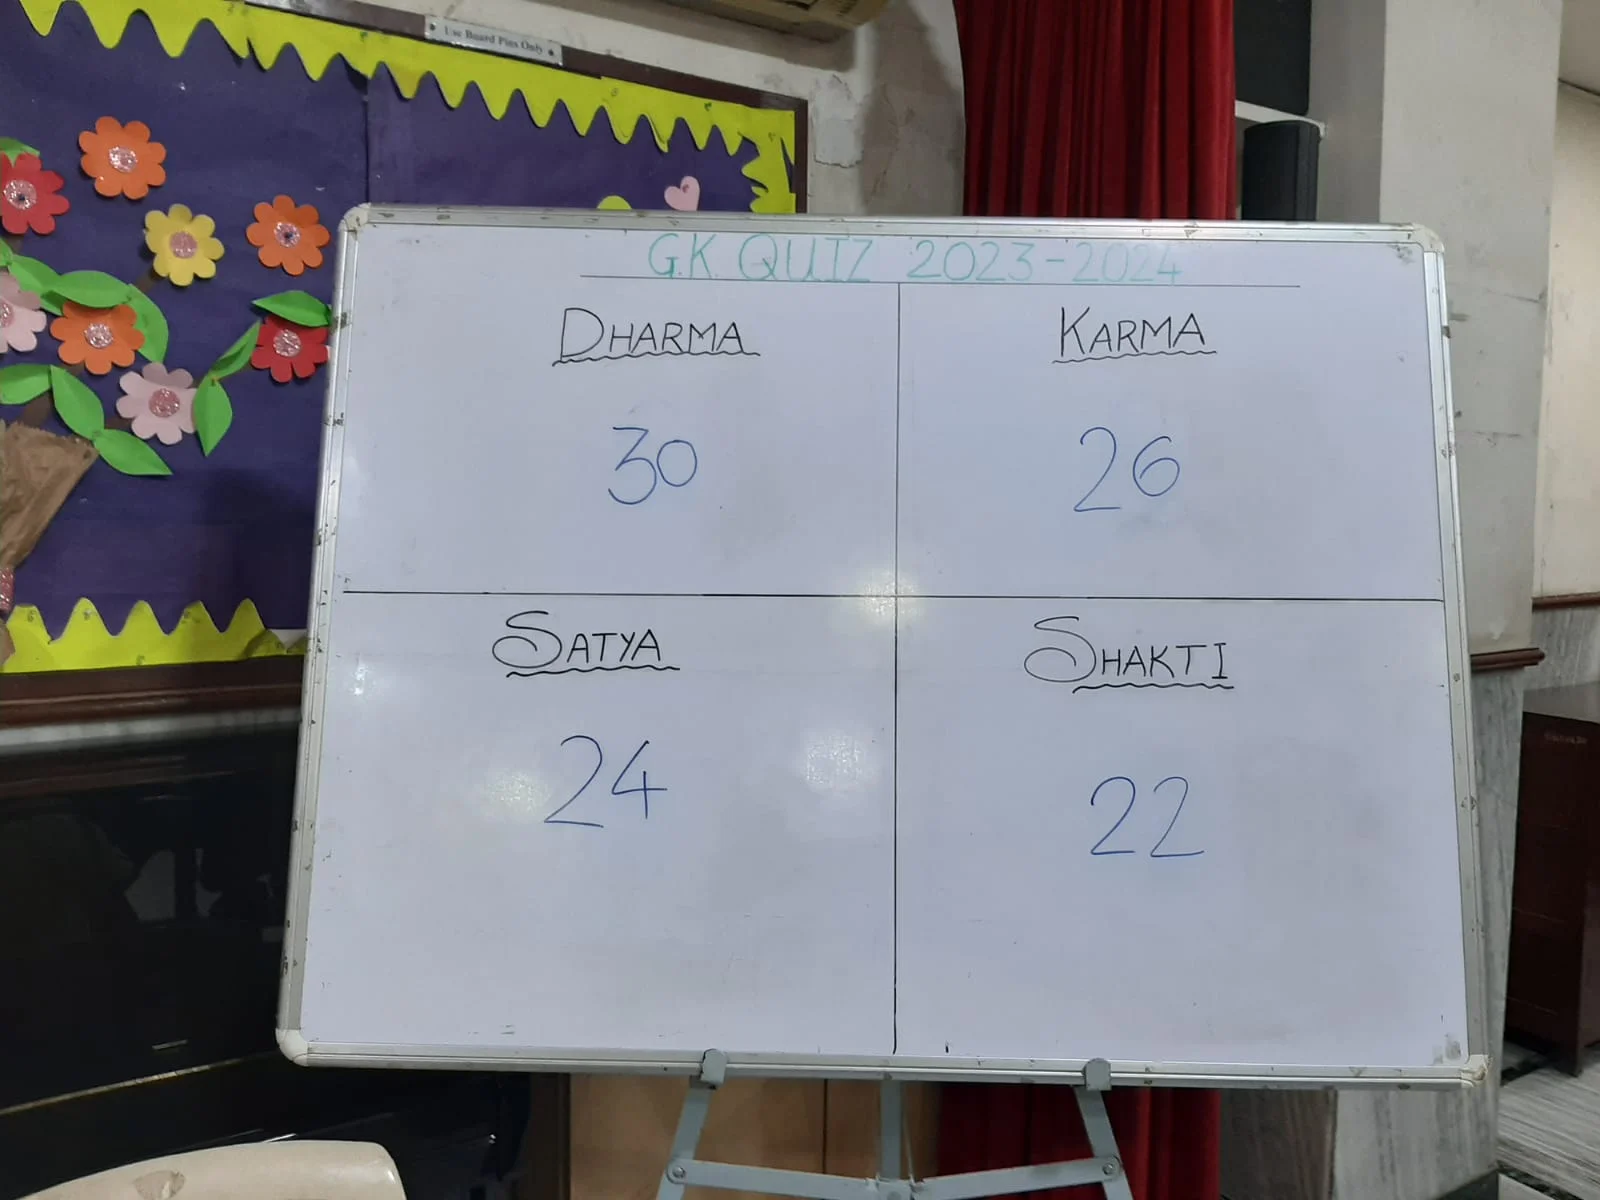 Use Board Pins Only
G.K. QUIZ 2023-2024
DHARMA
30
KARMA
26
SATYA
24
SHAKTI
22